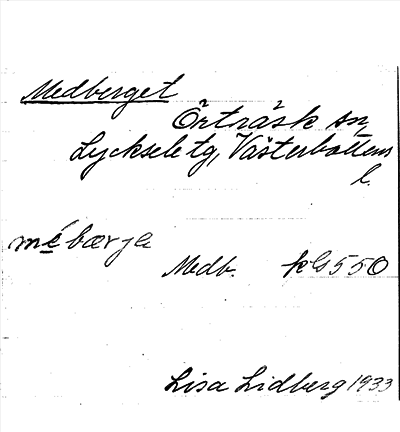 Medberget
Örträsk sn,
Lycksele tg, Västerbottens
l.
mé bærje
Medb. kls 550
Lisa Lidberg 1933